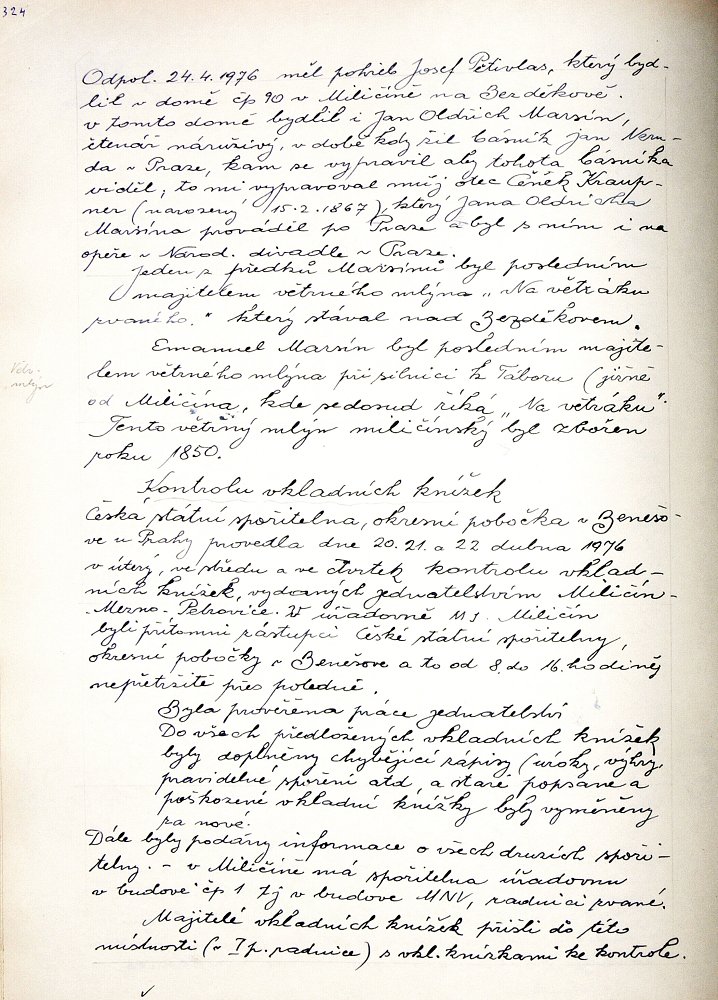 324
Odpol. 24.4.1976 měl pohřeb Josef Pětivlas, který byd-
lil v domě čp 90 v Miličíně na Bezděkově.
v tomto domě bydlil i Jan Oldřich Marsín,
čtenář náruživý, v době kdy žil básník Jan Neru-
da v Praze, kam se vypravil aby tohota básníka
viděl; to mi vypravoval můj otec Čeněk Kraup-
ner (narozený 15.2.1867), který Jana Oldřicha
Marsína prováděl po Praze a byl s ním i na
opeře v Národ. divadle v Praze.
Jeden z předků Marsínů byl posledním
majitelem větrného mlýna „Na větráku
zvaného." který stával nad Bezděkovem.
Emanuel Marsín byl posledním majite-
lem větrného mlýna při silnici k Táboru (jižně
od Miličína, kde se dosud říká „Na větráku".
Tento větrný mlýn miličínský byl zbořen
roku 1850.
Větr.
mlýn
Kontrolu vkladních knížek
Česká státní spořitelna, okresní pobočka v Benešo-
ve u Prahy provedla dne 20. 21. a 22 dubna 1976
v úterý, ve středu a ve čtvrtek kontrolu vklad-
ních knížek, vydaných jednatelstvím Miličín-
-Mezno-Petrovice. V úřadovně MJ. Miličín
byli přítomni zástupci České státní spořitelny,
okresní pobočky v Benešove a to od 8. do 16. hodiněj
nepřetržitě přes poledně.
Byla prověřena práce jednatelství
Do všech předložených vkladních knížek
byly doplněny chybějící zápisy (úroky, výhry,
pravidelné spoření atd, a staré popsane a
poškozené vkladní knížky byly vyměněny
za nové.
Dále byly podány informace o všech druzích spoři-
telny. - v Miličíně má spořitelna úřadovnu
v budově čp 1 tj v budově MNV, radnicí zvané.
Majitelé vkladních knížek přišli do této
místnosti (v I p. radnice) s vkl. knížkami ke kontrole.